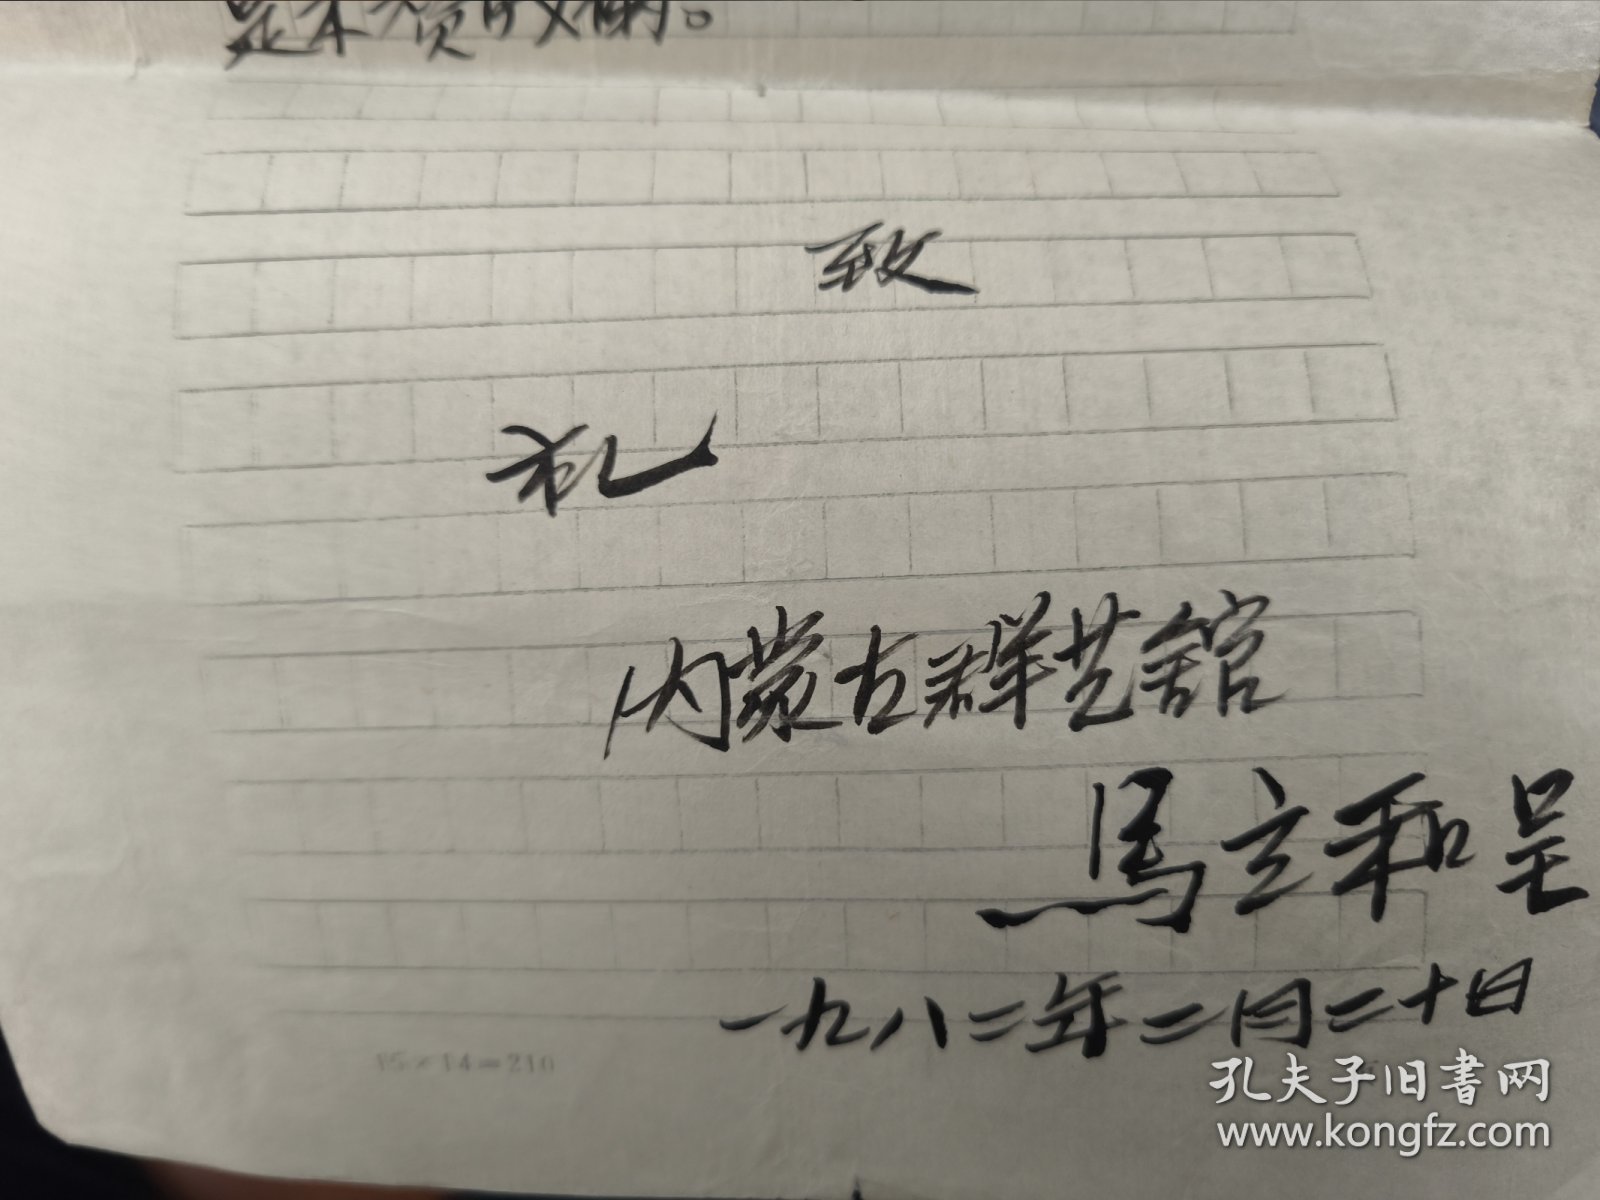 致
礼
内蒙古群艺舘
馬立和呈
一九八二年二月二十日
15×14=210
孔夫子旧書网
www.kongfz.com